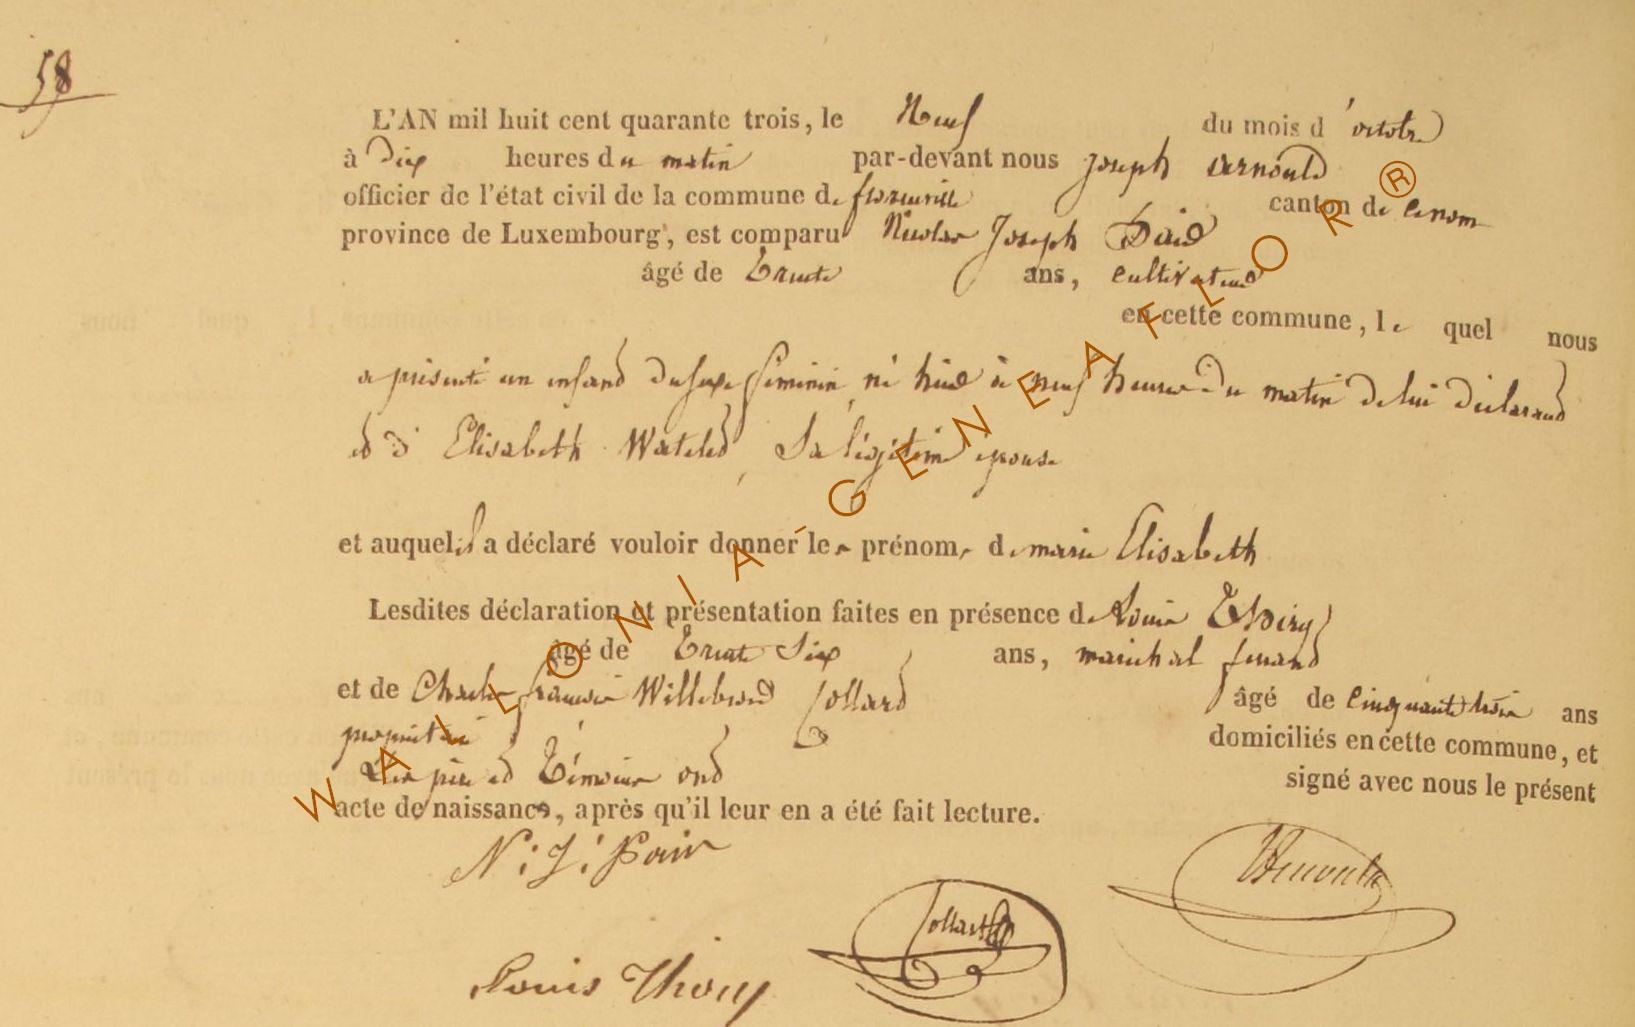 58
L'AN mil huit cent quarante trois, le Neuf du mois d'octobre
à Dix heures du matin par-devant nous Joseph Arnould
officier de l'état civil de la commune de florenville canton de ce nom
province de Luxembourg, est comparu Nicolas Joseph
âgé de Trente ans, cultivateur
en cette commune, le quel nous
a présenté un enfand du sexe féminin, né hier à neuf heures du matin de lui déclarand
et d'Elisabeth Watelet, Sa légitime épouse
et auquel il a déclaré vouloir donner les prénoms de marie Elisabeth
Lesdites déclaration et présentation faites en présence de Louis Thiry
âgé de Trente Six ans, maréchal ferrand
et de Charles françois Willebrord Collard âgé de cinquante trois ans
propriétaire domiciliés en cette commune, et
Les père et Témoins ond signé avec nous le présent
acte de naissance, après qu'il leur en a été fait lecture.
N: J:
Arnould
Collard
Louis Thiry
WALLONIA-GENEAFLOR®